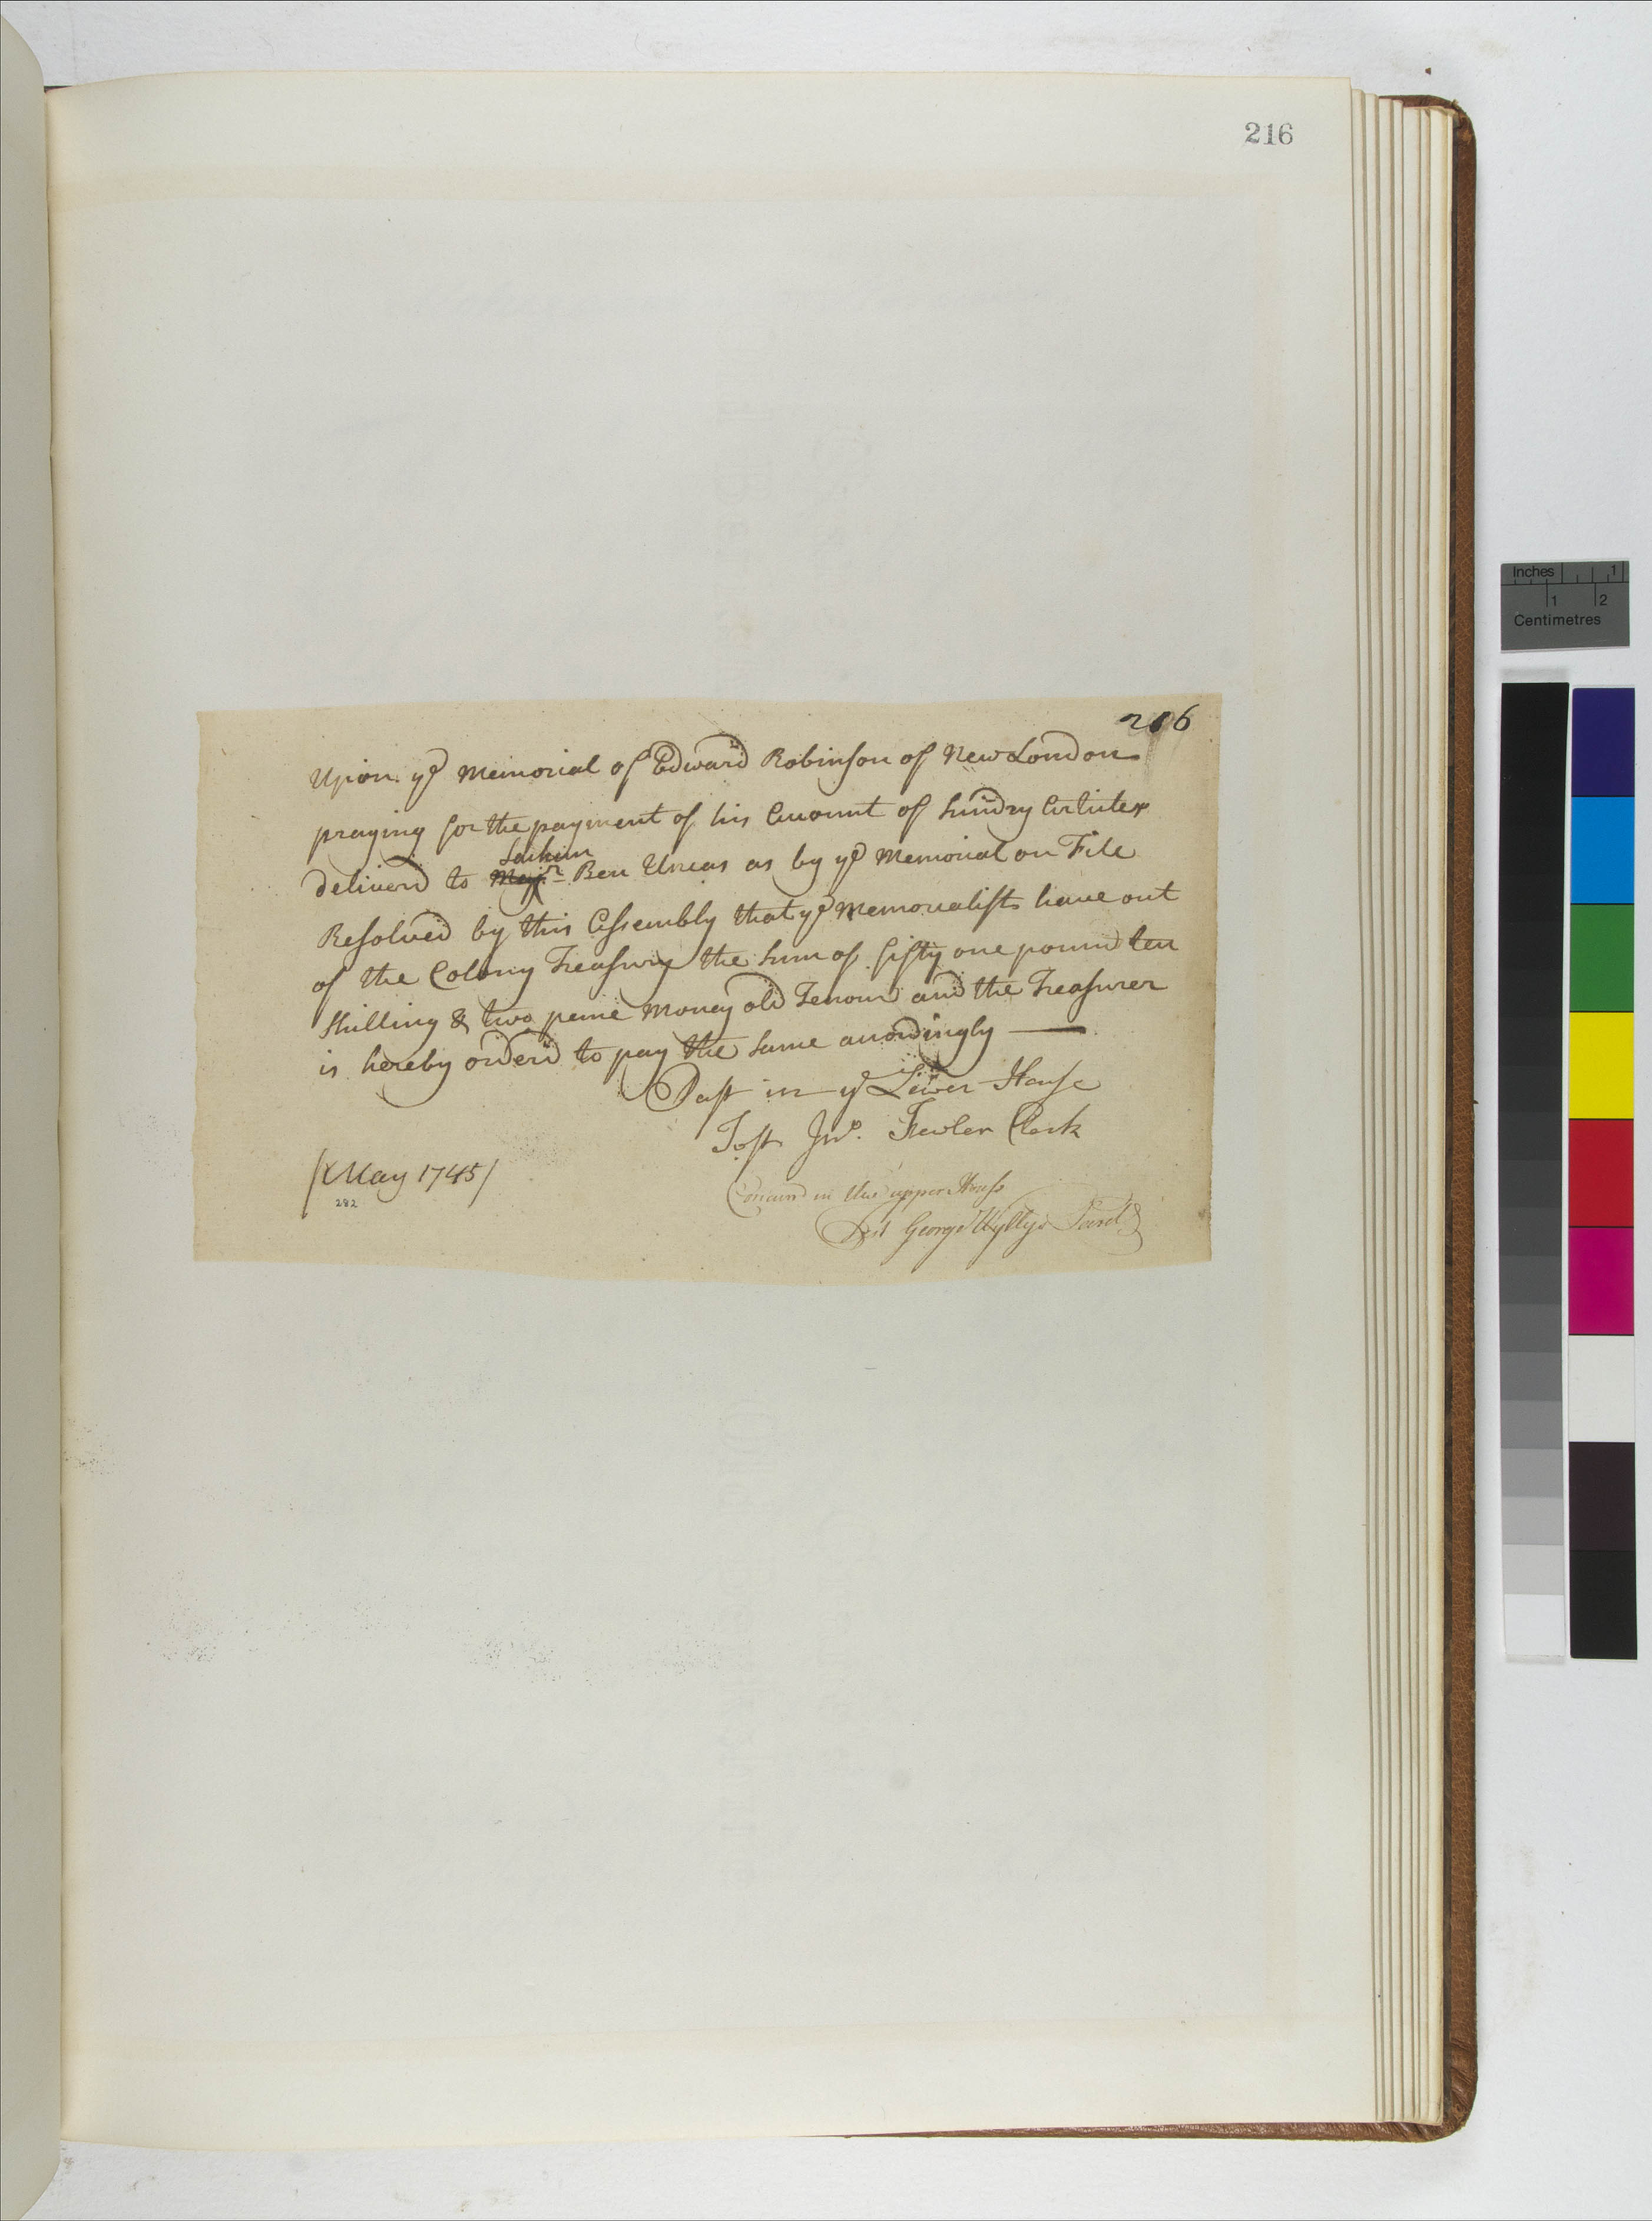 216
216
Upon ye Memorial of Edward Robinson of New London
praying for the payment of his Account of Sundry Articles
Sachim
deliverd to Majr Ben Uncas as by ye Memorial on File
Resolved by this Assembly that ye Memorialist have out
of the Colony Treasury the Sum of fifty one pound ten
Shilling & two penie Money old Tenour and the Treasurer
is hereby orderd to pay the Same accordingly
Past in ye Lower House
Test Jno. Fowler Clerk
[May 1745]
282
Concurrd in the upper House
Test George Wyllys Secrety
Inches 1
1 2
Centimetres